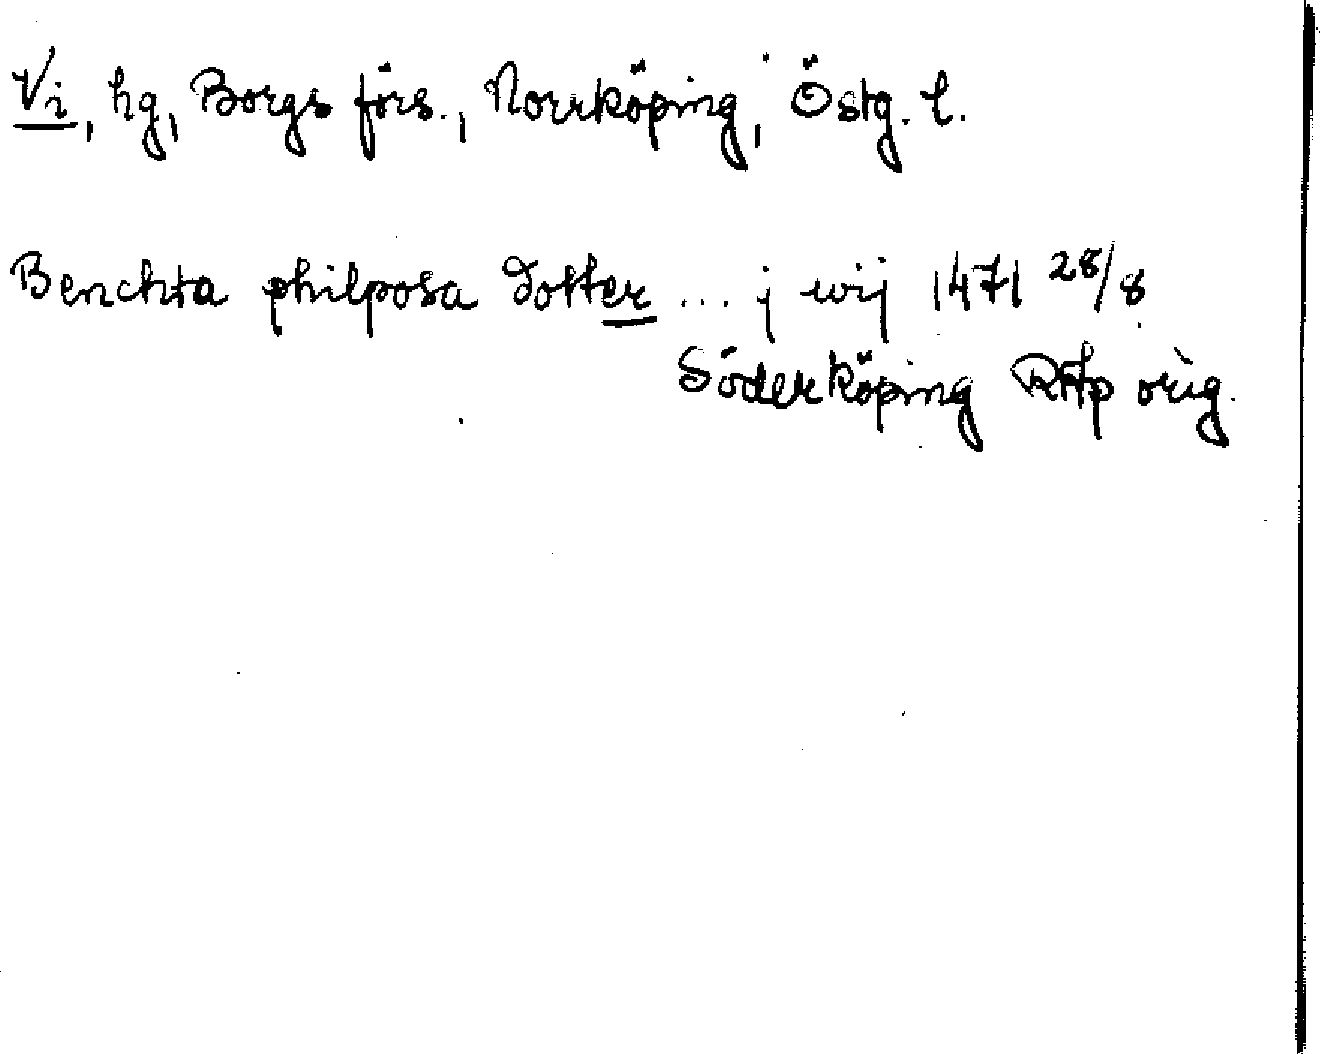 Vi, hg, Borgs förs., Norrköping, Östg. l.
Benchta philposa dotter ... j wij 1471 28/8
Söderköping RAp orig.